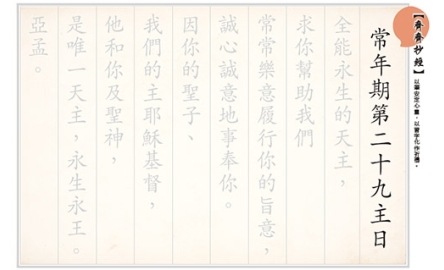 【齊齊抄經】以筆安定心靈，以習字化作祈禱。
常年期第二十九主日
全能永生的天主，
求你幫助我們
常常樂意履行你的旨意，
誠心誠意地事奉你。
因你的聖子、
我們的主耶穌基督，
他和你及聖神，
是唯一天主，永生永王。
亞孟。